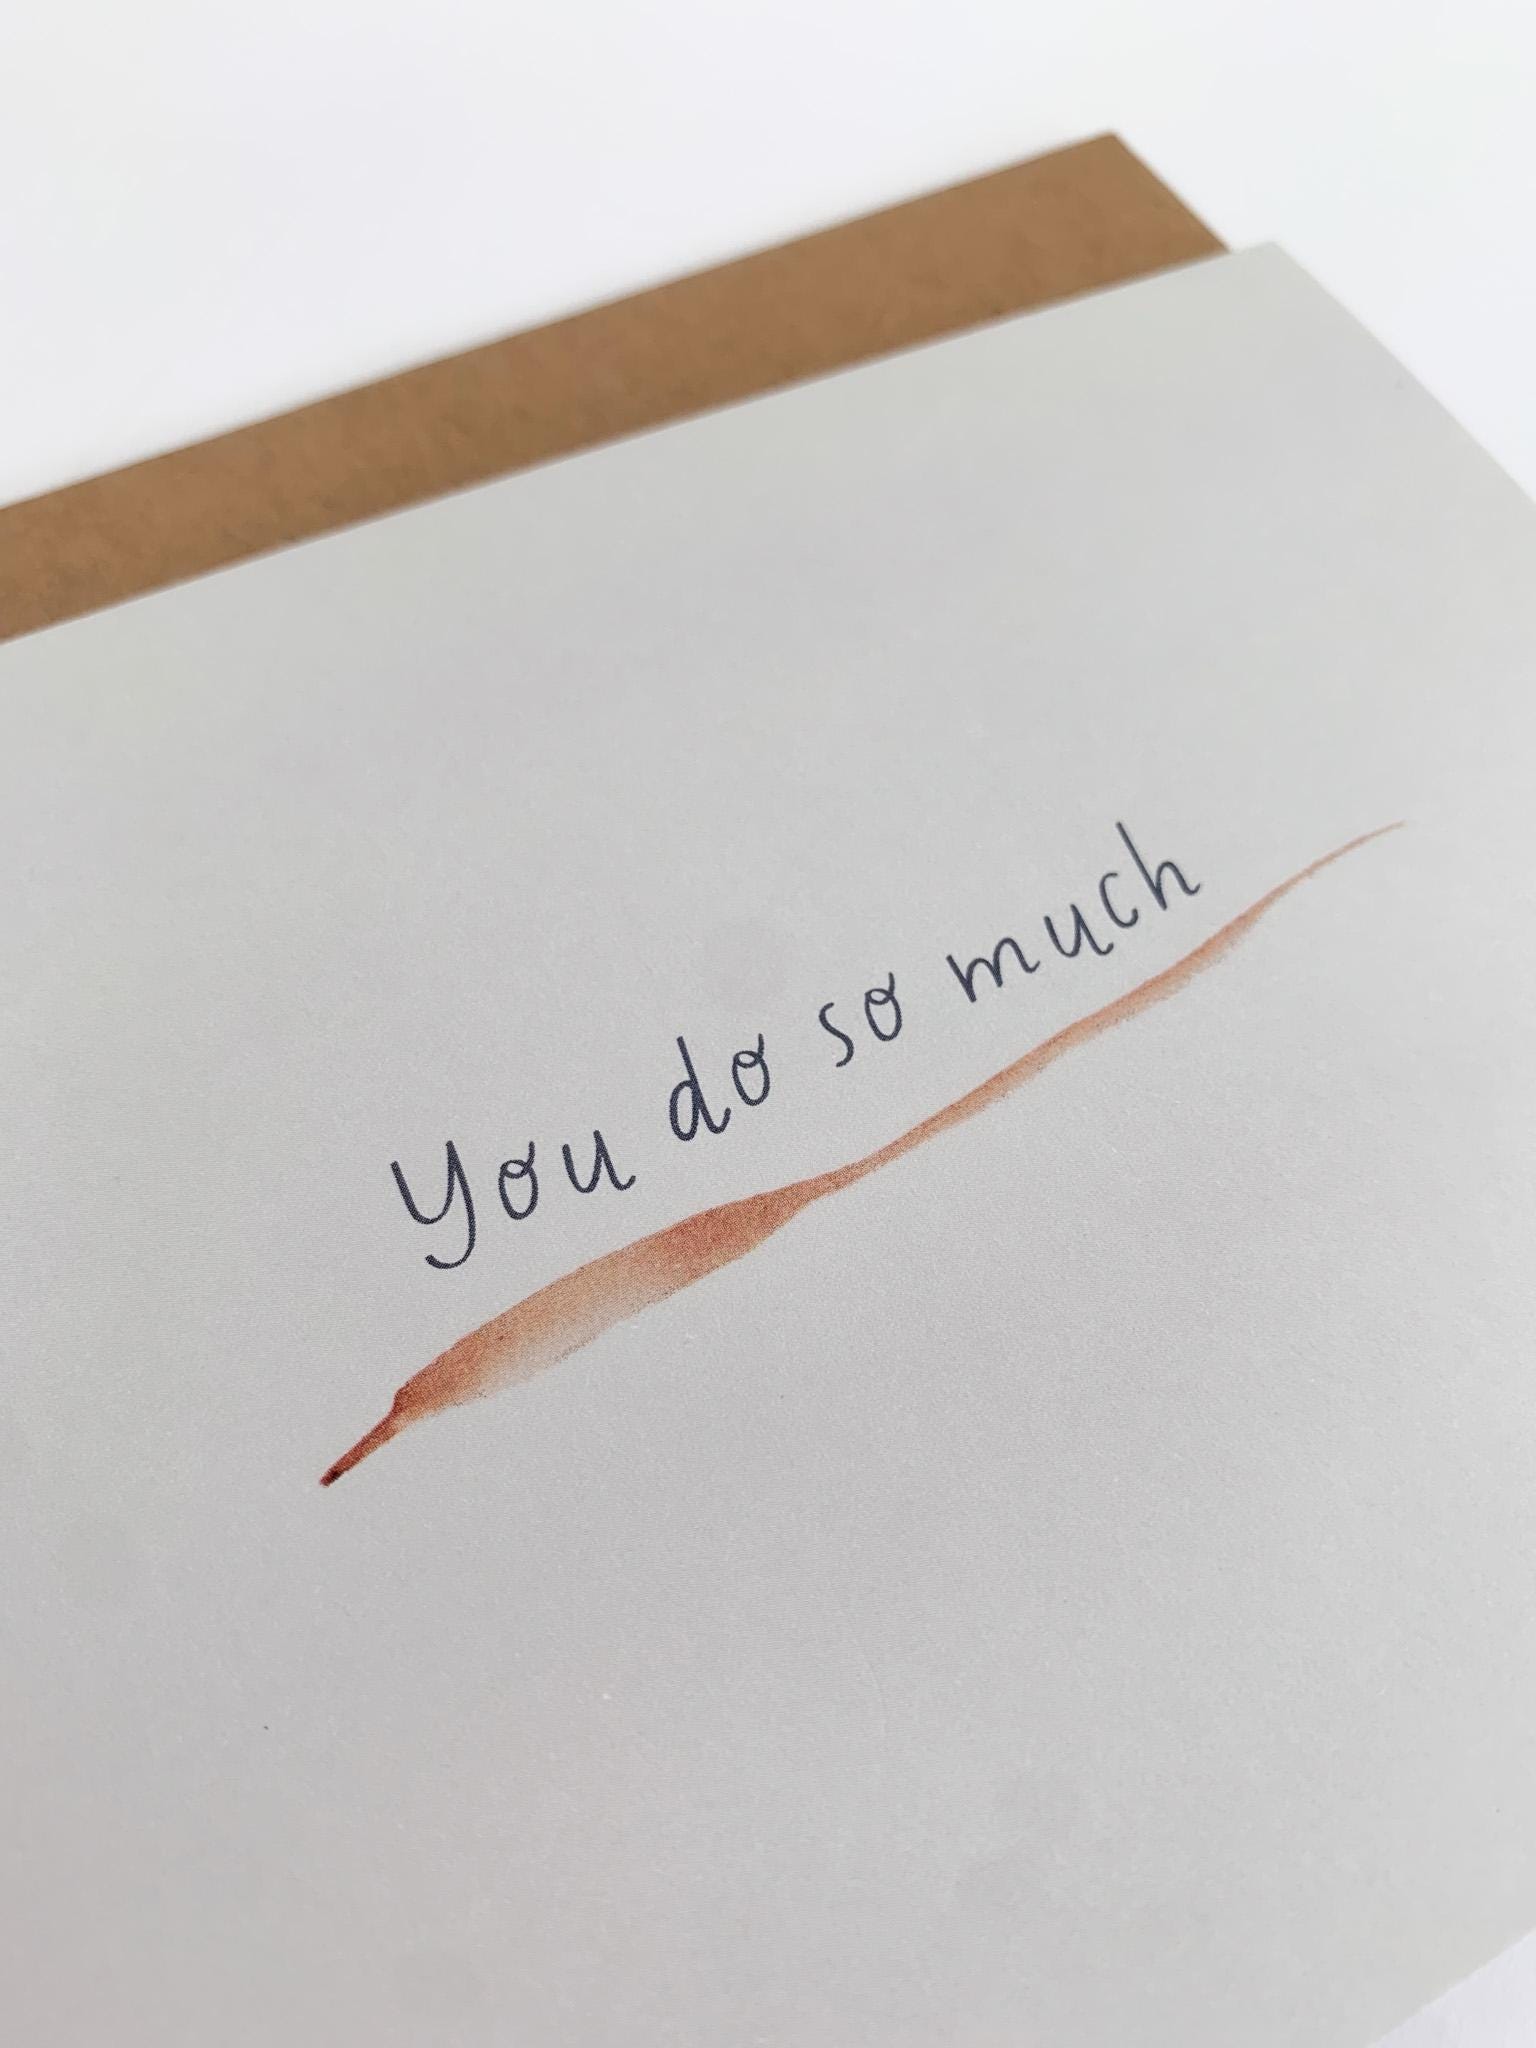 You do so much